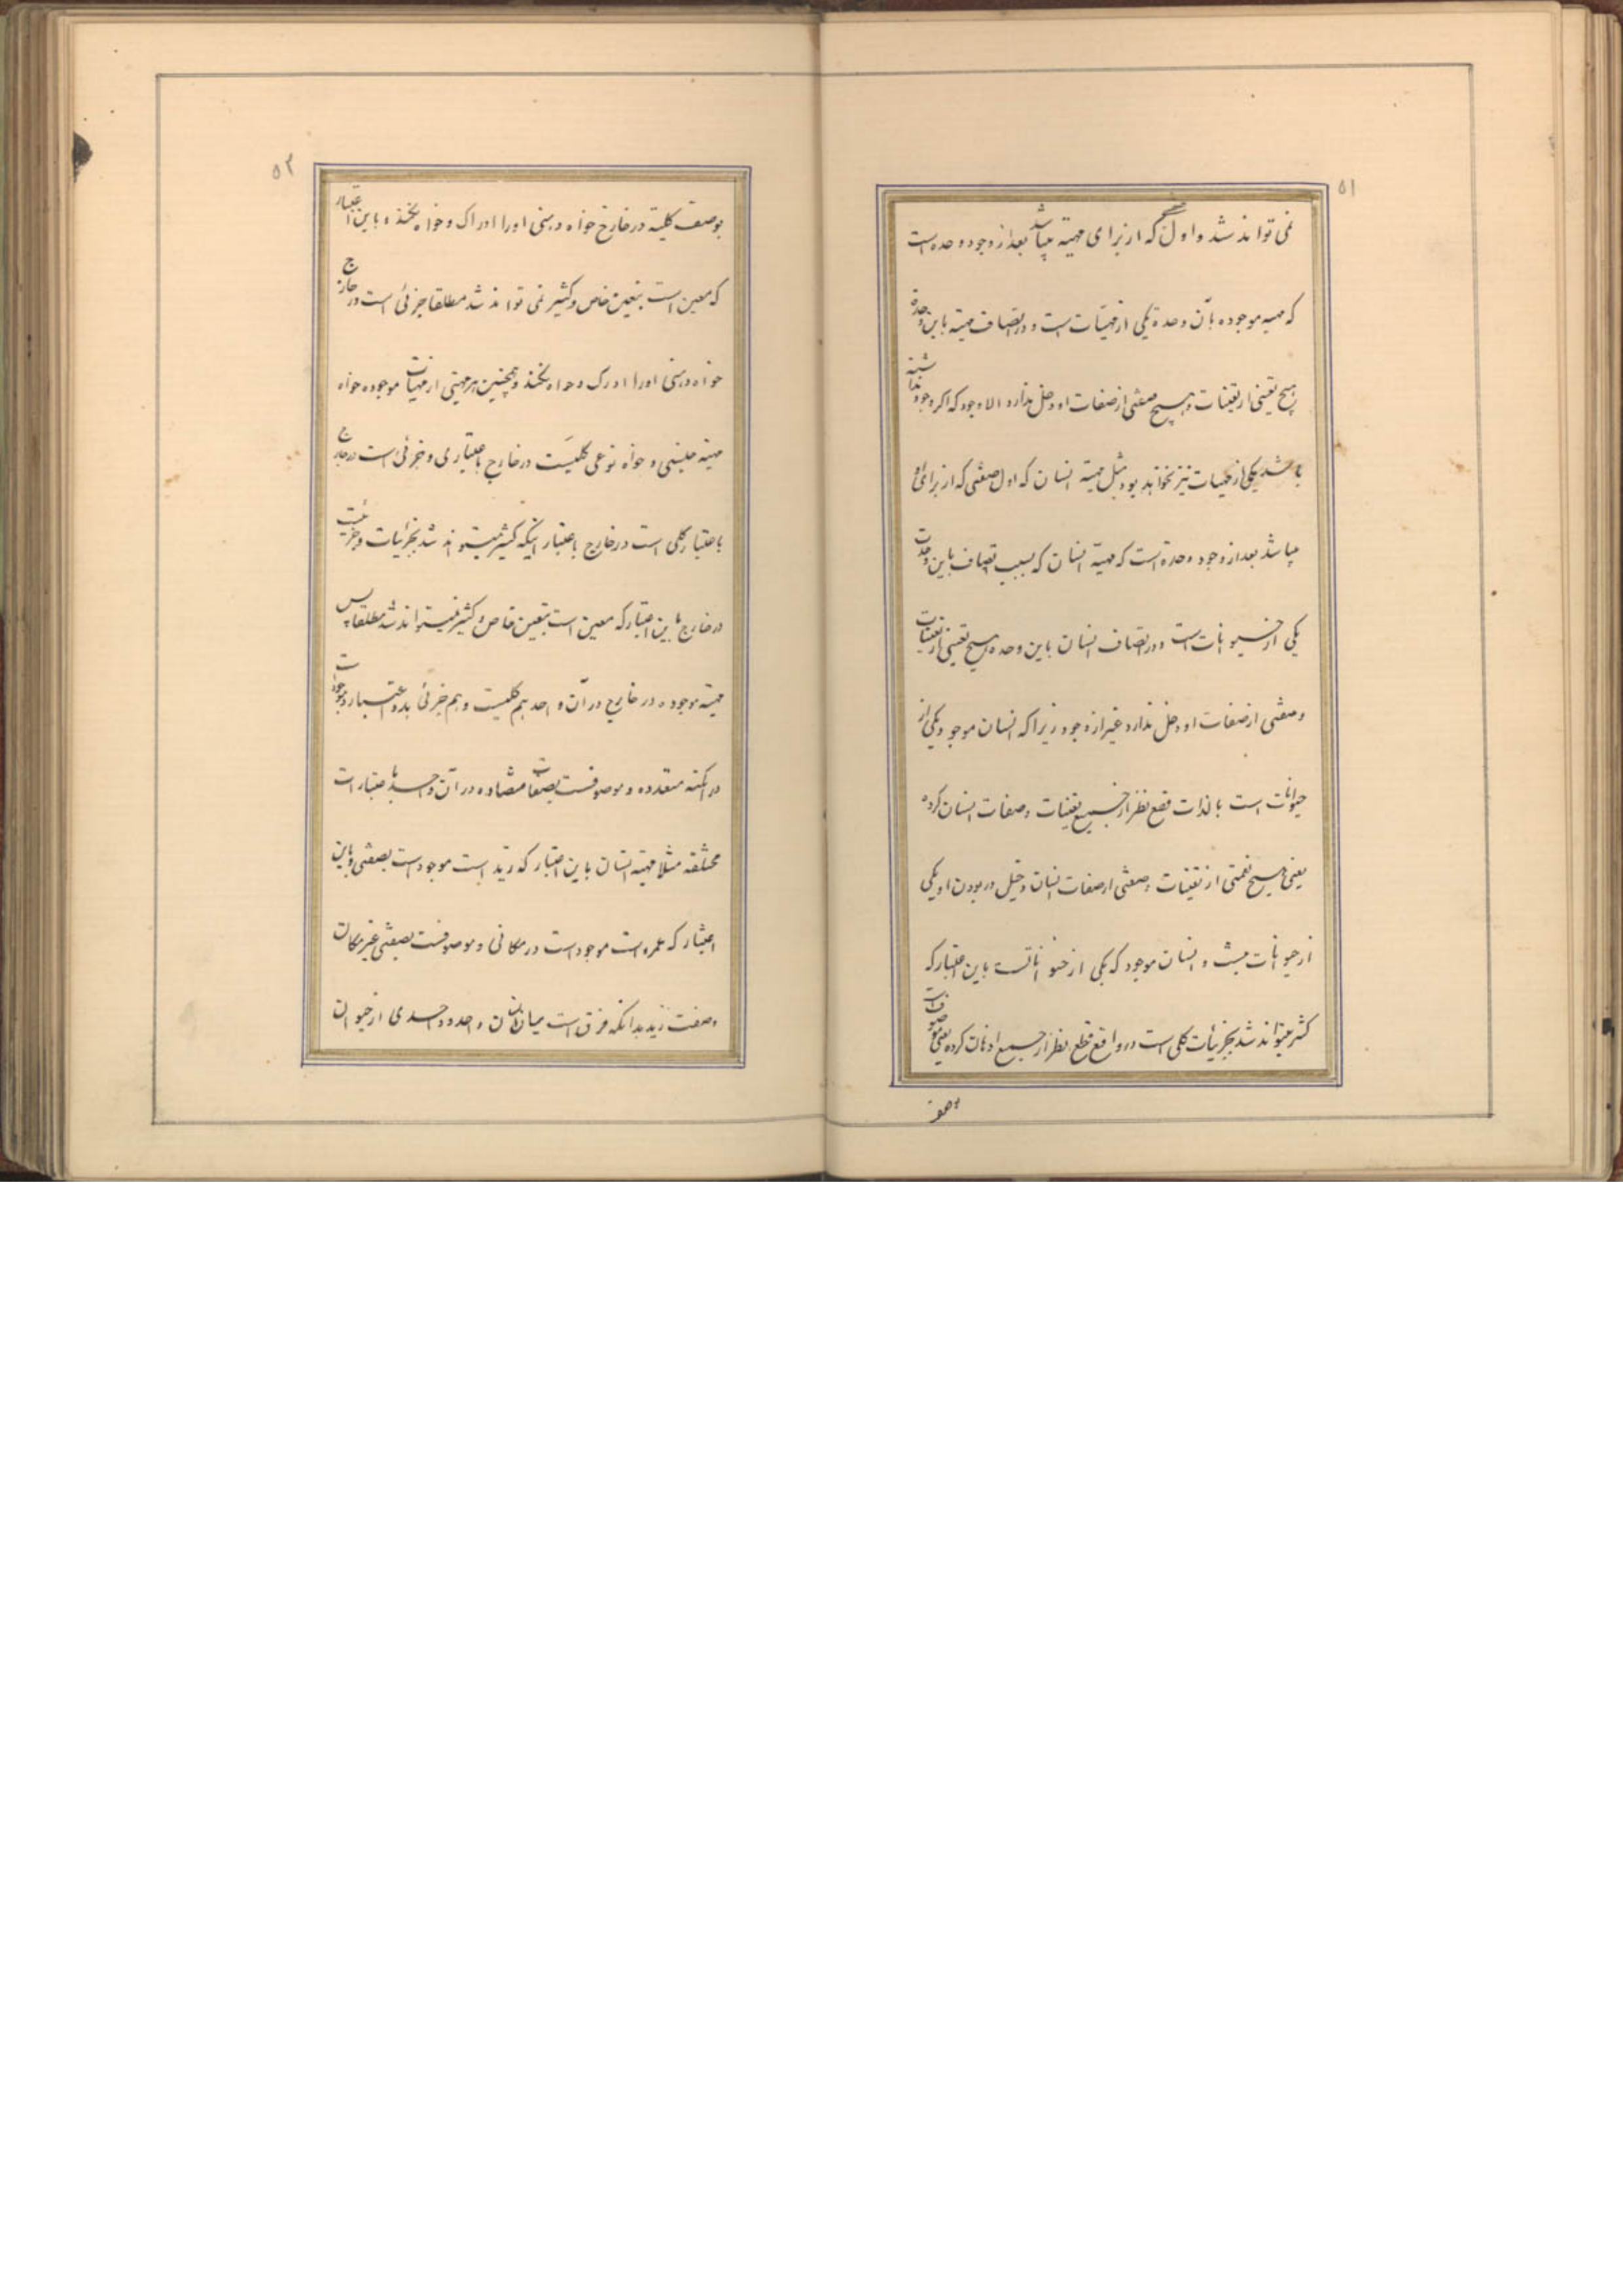 ۵۱
نمی تواند شد و اول که از برای مهیة میباشد بعد از وجود وحده است
که مهیه موجوده بآن وحدة یکی از مهیات است و در اتصاف مهیة باین وحدة
هیچ تعینی از تعینات و هیچ صفتی از صفات او دخل ندارد الا وجود که اگر وجود نداشته
باشد یکی از مهیات نیز نخواهد بود مثل مهیة انسان که اول صفتی که از برای او
میباشد بعد از وجود وحدة است که مهیة انسان که بسبب اتصاف باین وحدت
یکی از حیوانات است و در اتصاف انسان باین وحده هیچ تعینی از تعینات
و صفتی از صفات او دخل ندارد غیر از وجود زیرا که انسان موجود یکی از
حیوانات است بالذات قطع نظر از جمیع تعینات و صفات انسان کرده
یعنی هیچ تعینی از تعینات و صفتی از صفات انسان دخیل در بودن او یکی
از حیوانات نیست و انسان موجود که یکی از حیواناتست باین اعتبار که
کثیر میتواند شد بجزئیات کلی است در واقع قطع نظر از جمیع اذهان کرده یعنی موصوفست
بوصف
۵۲
بوصف کلیة در خارج خواه ذهنی اورا ادراک و خواه نکند و باین اعتبار
که معین است بتعین خاص و کثیر نمی تواند شد مطلقا جزئی است در خارج
خواه ذهنی اورا ادرک و خواه نکند و همچنین هر مهیتی از مهیات موجوده خواه
مهیة جنسی و خواه نوعی کلیست در خارج باعتباری و جزئی است در خارج
باعتبار کلی است در خارج باعتبار اینکه کثیر میتواند شد بجزئیات و جزئیست
در خارج باین اعتبار که معین است بتعین خاص و کثیر نمیتواند شد مطلقا پس
مهیة موجوده در خارج در آن واحد هم کلیست و هم جزئی بدو اعتبار و موجودات
در امکنه متعدده و موصوفست بصفات متضاده در آن واحد باعتبارات
مختلفه مثلا مهیة انسان باین اعتبار که زید است موجود است بصفتی و باین
اعتبار که عمرو است موجود است در مکانی و موصوفست بصفتی غیر مکان
و صفت زید بدانکه فرق است میان انسان واحد و واحدی از حیوان